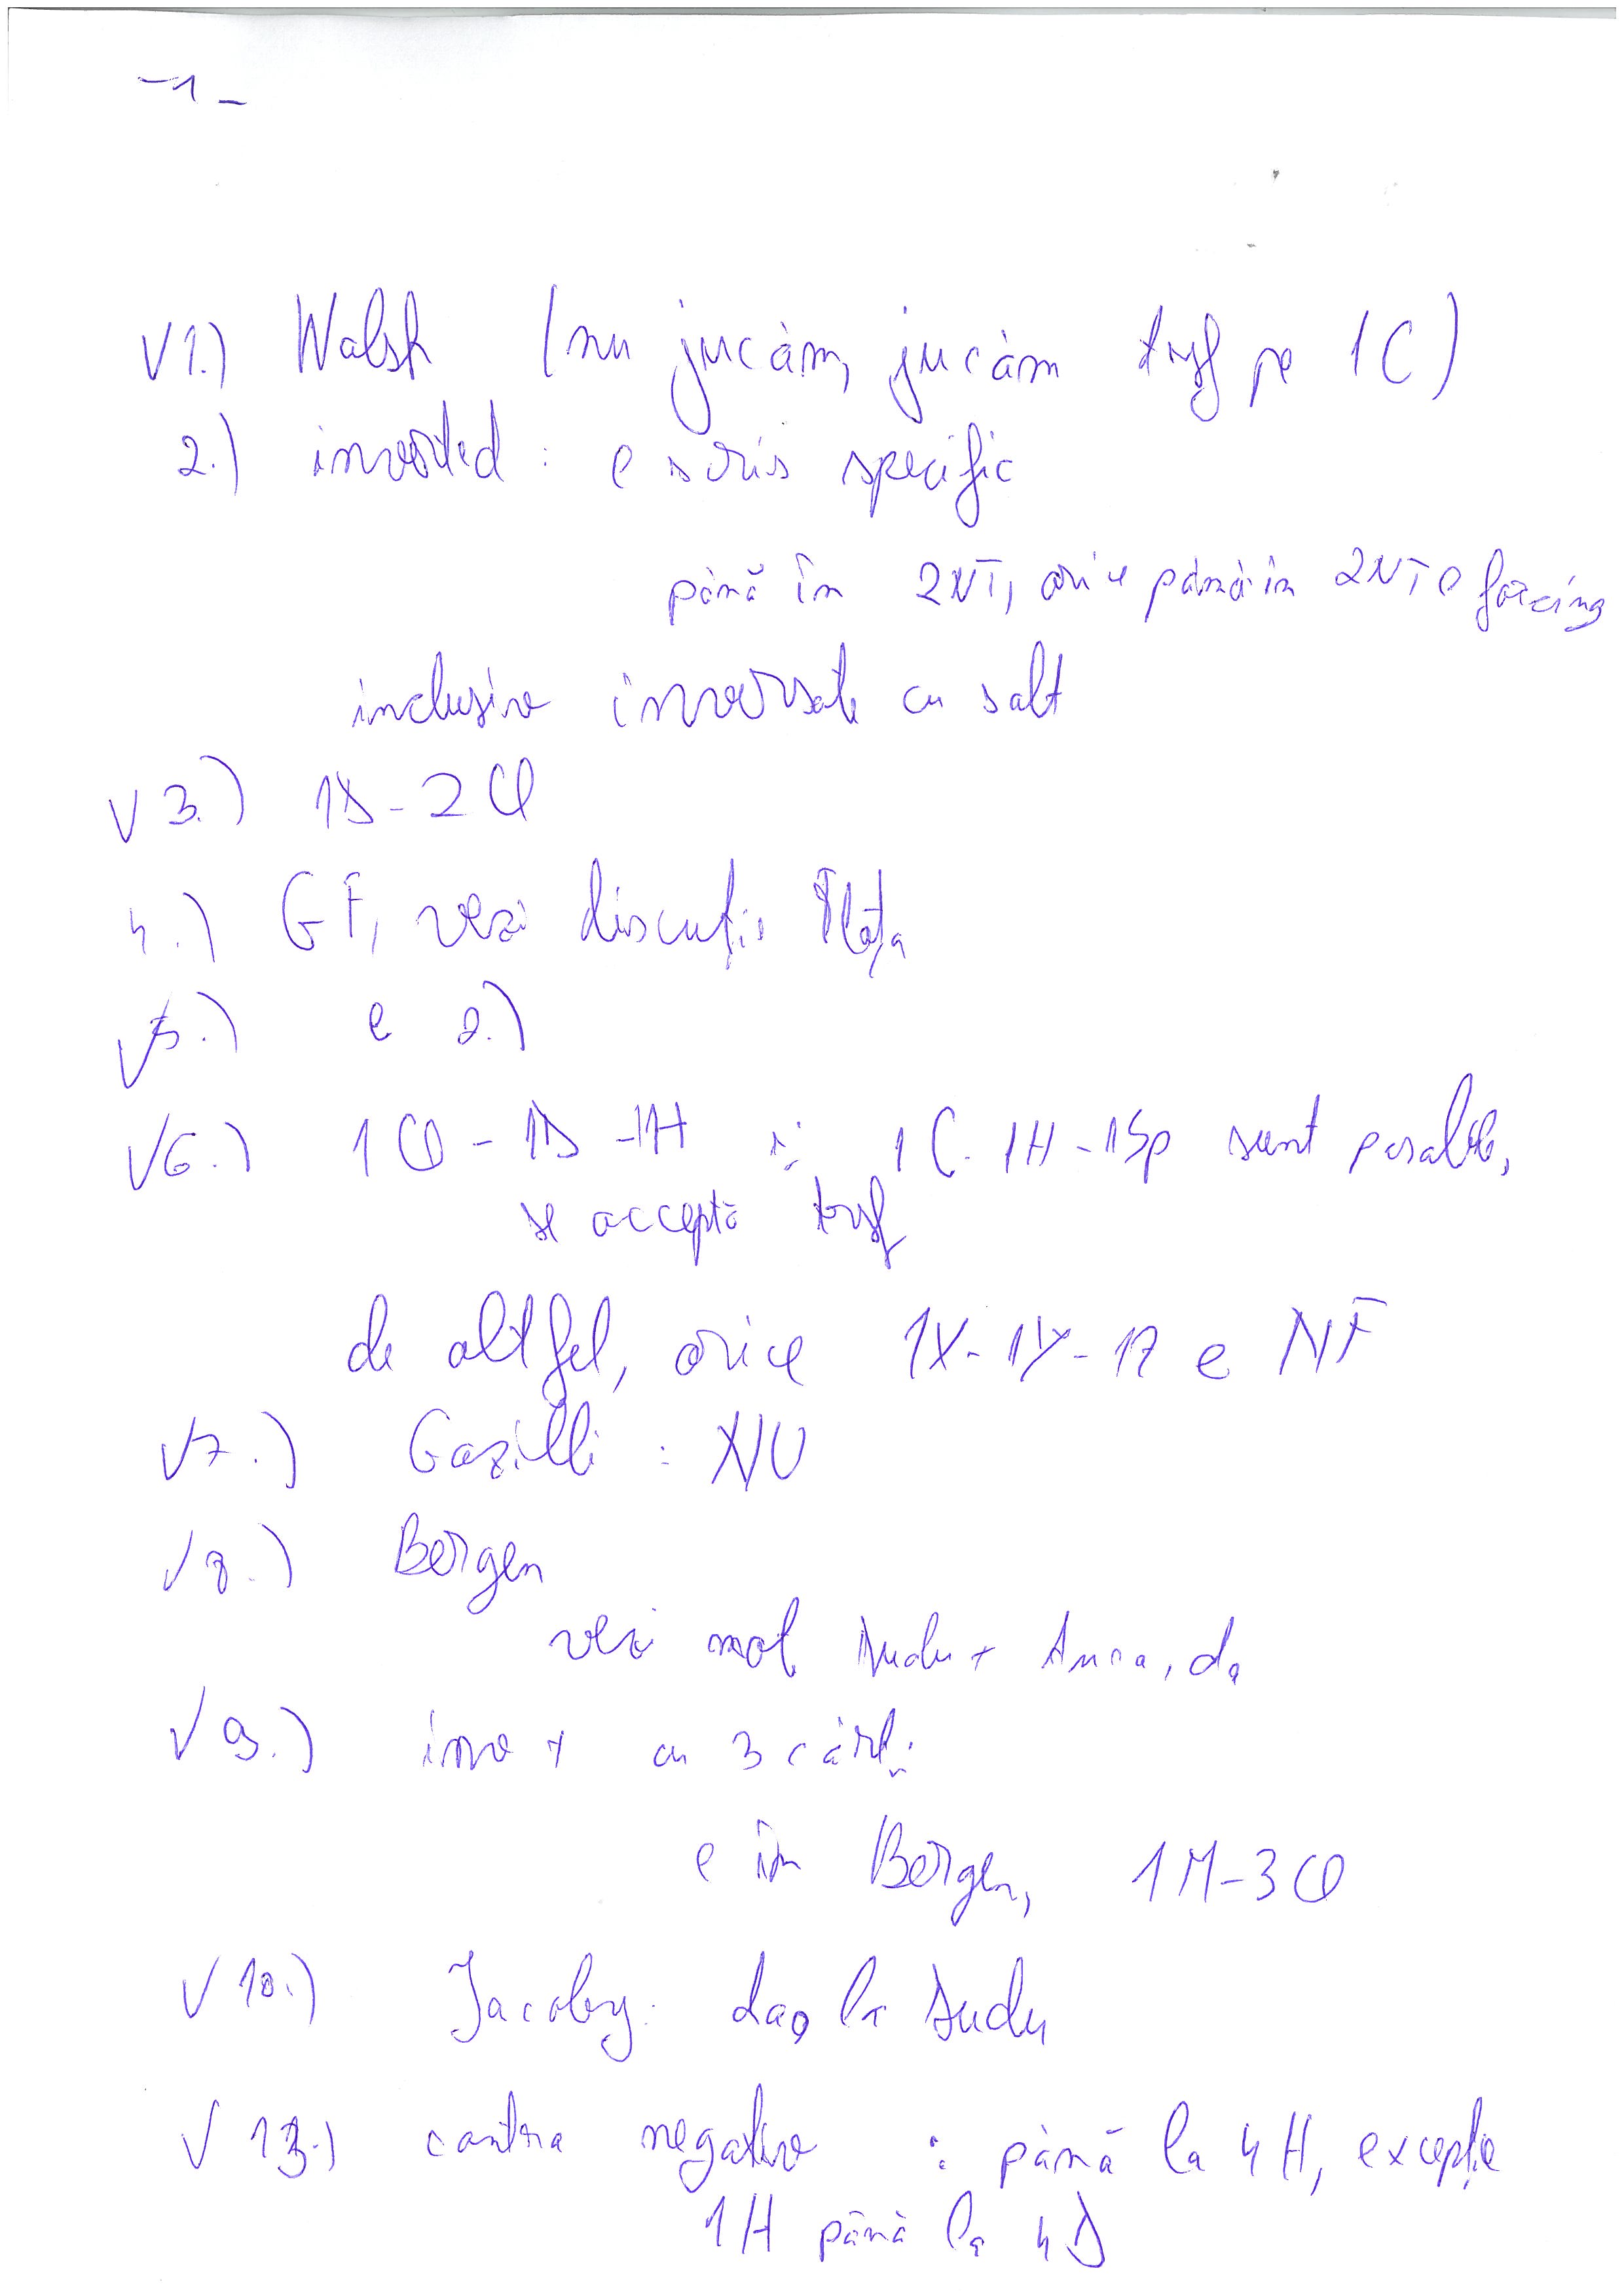 -1-
V 1.) Walsh (nu jucăm, jucăm trsf pe 1C)
2.) inverted : e scris specific
până în 2NT, orice până în 2NT e forcing
inclusive inversate cu salt
V 3.) 1D - 2Cl
4.) GF, vezi discuții
V 5.) e 2.)
V 6.) 1Cl - 1D - 1H și 1C - 1H - 1Sp sunt
se acceptă trsf
de altfel, orice 1X - 1Y - 1Z e NF
V 7.) Gazilli : NU
V 8.) Bergen
vezi mat Dudu + Anca, da
V 9.) inv + cu 3 cărți
e în Bergen, 1M - 3Cl
V 10.) Jacoby: da, la Dudu
V 13.) contra negative : până la 4H, excepție
1H până la 4D